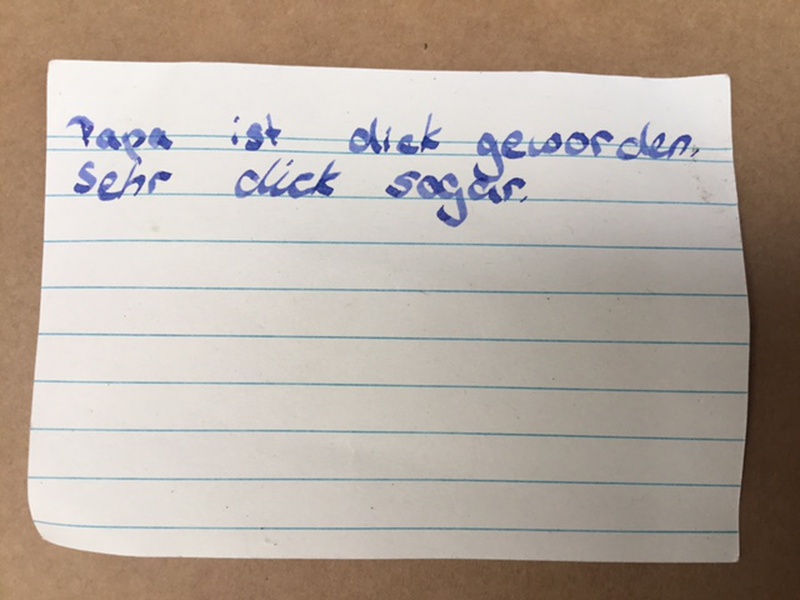 Papa ist dick geworden.
Sehr dick sogar.